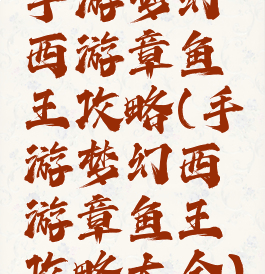 手游梦幻
西游章鱼
王攻略(手
游梦幻西
游章鱼王
攻略大全)